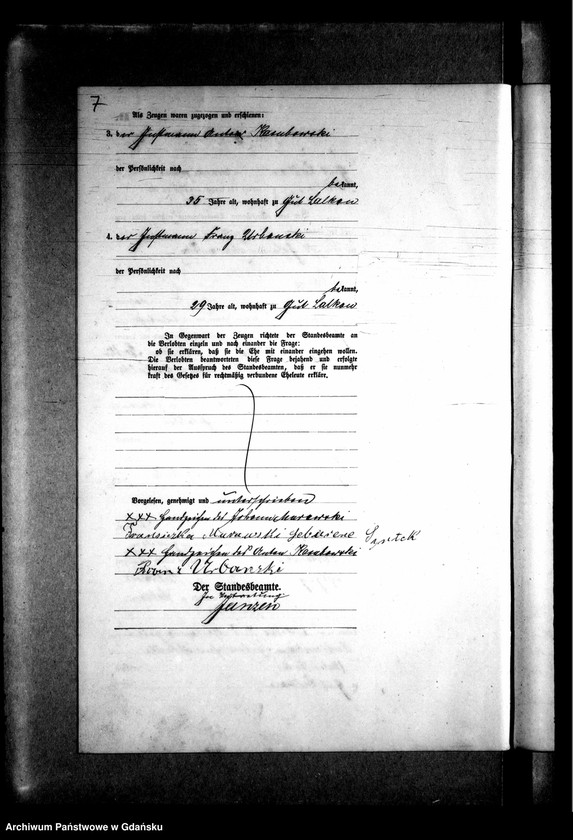 7
Als Zeugen waren zugezogen und erschienen:
3. der Instmann Anton
der Persönlichkeit nach
bekannt,
35 Jahre alt, wohnhaft zu Gut Lalkau
4. der Instmann Franz Urbanski
der Persönlichkeit nach
bekannt,
29 Jahre alt, wohnhaft zu Gut Lalkau
In Gegenwart der Zeugen richtete der Standesbeamte an
die Verlobten einzeln und nach einander die Frage:
ob sie erklären, daß sie die Ehe mit einander eingehen wollen.
Die Verlobten beantworteten diese Frage bejahend und erfolgte
hierauf der Ausspruch des Standesbeamten, daß er sie nunmehr
kraft des Gesetzes für rechtmäßig verbundene Eheleute erkläre.
Vorgelesen, genehmigt und unterschrieben
xxx Handzeichen des Johann Murawski
Franziszka Murawski geborene
xxx Handzeichen des Anton
Urbanski
Der Standesbeamte.
In Vertretung
Janzen
Archiwum Państwowe w Gdańsku